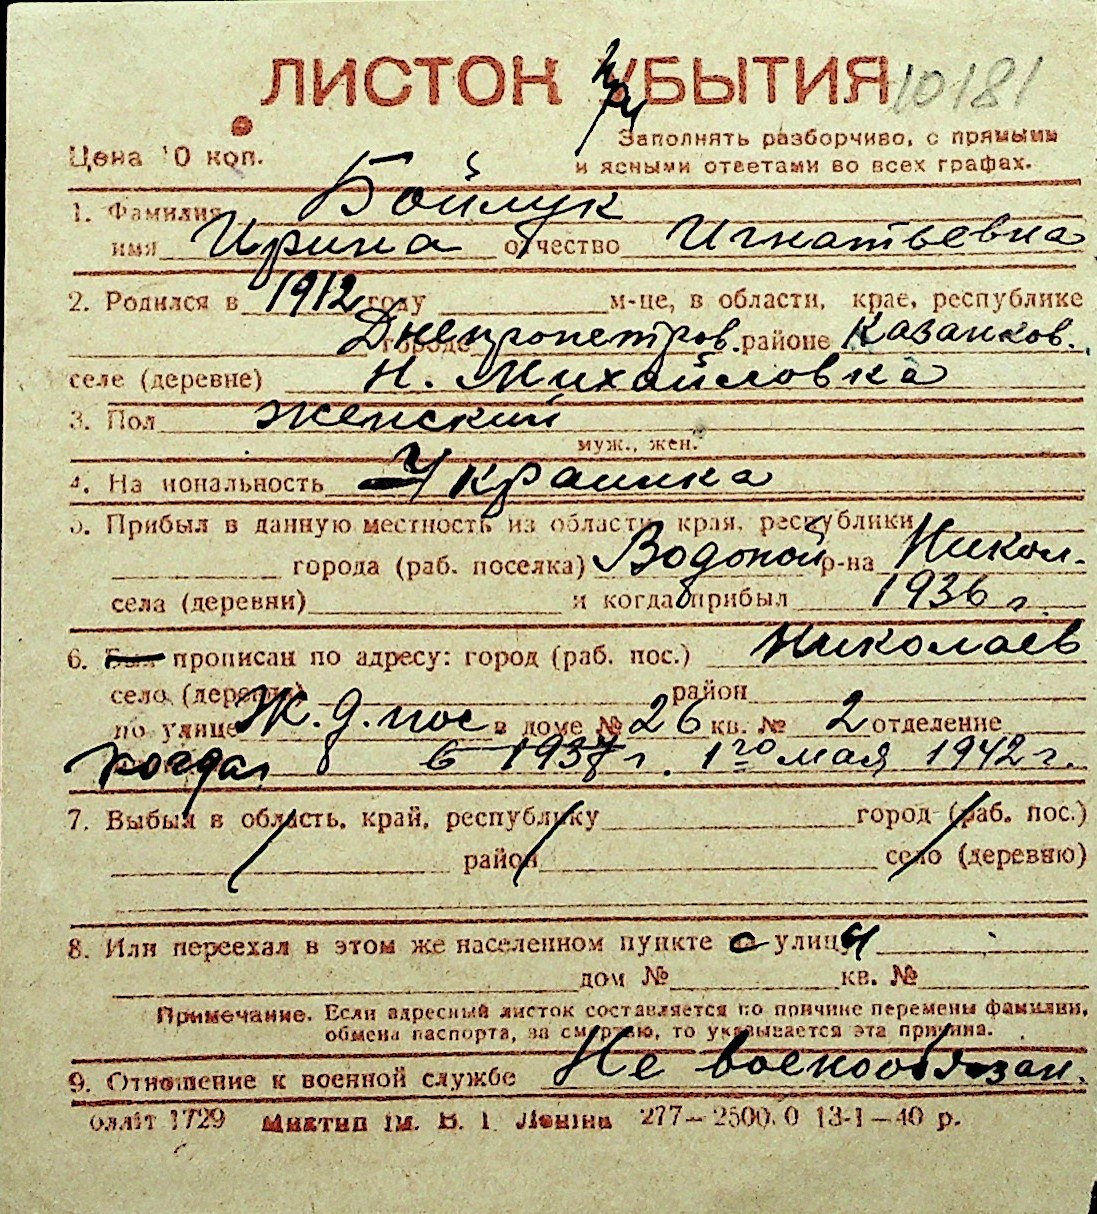 ЛИСТОК УБЫТИЯ 10181
при
Цена 10 коп.
Заполнять разборчиво, с прямыми
и ясными ответами во всех графах.
1. Фамилия Бойлук
имя Ирина отчество Игнатьевна
2. Родился в 1912 году м-це, в области, крае, республике
городе Днепропетров. районе Казанков.
селе (деревне) Н. Михайловка
3. Пол женский
муж., жен.
4. Национальность Украинка
5. Прибыл в данную местность из области, края, республики
города (раб. поселка) Водопой р-на Никол.
села (деревни) и когда прибыл 1936 г.
6. Был прописан по адресу: город (раб. пос.) Николаев
село (деревня) район
по улице Ж. д. пос в доме № 26 кв. № 2 отделение
когда 1го мая 1942 г.
7. Выбыл в область, край, республику город (раб. пос.)
район село (деревню)
8. Или переехал в этом же населенном пункте с улицы
дом № кв. №
Примечание. Если адресный листок составляется по причине перемены фамилии,
обмена паспорта, за смертью, то указывается эта причина.
9. Отношение к военной службе Не военнообязан.
1729 Миктип ім. В. І. Леніна 277—2500.0 13-1—40 р.